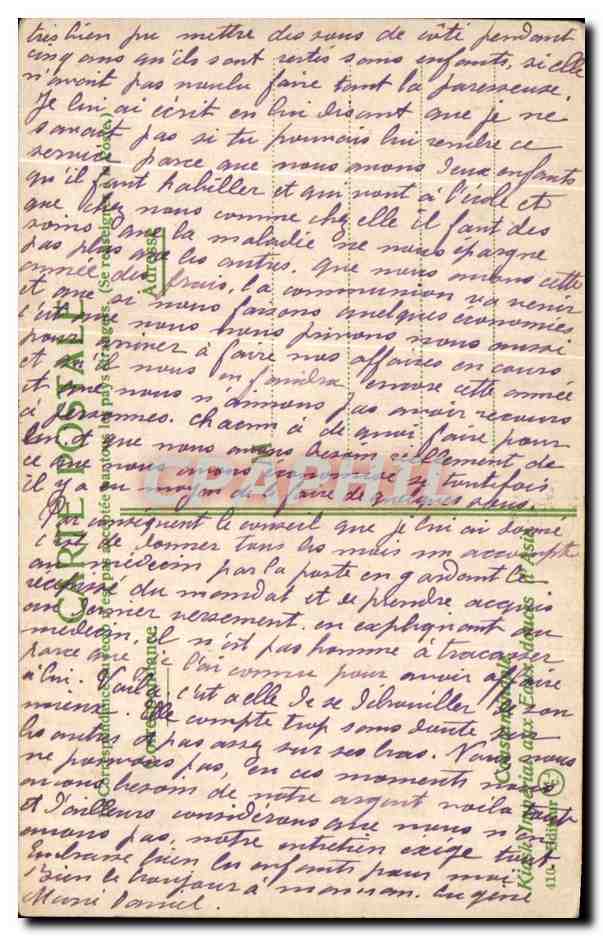 très bien pu mettre des sous de côté pendant
cinq ans qu'ils sont restés sans enfants, si elle
n'avait pas voulu faire tant la paresseuse.
Je lui ai écrit en lui disant que je ne
savais pas si tu pourrais lui rendre ce
service parce que nous avons deux enfants
qu'il faut habiller et qui vont à l'école et
que chez nous comme chez elle il faut des
soins que la maladie ne nous épargne
pas plus que les autres. que nous avons cette
année des frais, la communion va venir
et que si nous faisons quelques économies
c'est que nous nous privons nous aussi
pour arriver à faire nos affaires en cours
et s'il nous en faudra encore cette année
et que nous n'aimons pas avoir recours
à personnes. chacun a de quoi faire pour
lui et que nous avons besoin réellement de
ce que nous avons si toutefois
il y a eu moyen de le faire de quelques sous.
Par conséquent le conseil que je lui ai donné
c'est de donner tous les mois un accompte
au médecin par la poste en gardant le
recepissé du mandat et de prendre acquis
au dernier versement. en expliquant au
médecin, il n'est pas homme à tracasser
parce que je l'ai connu pour avoir affaire
à lui. Voilà, c'est a elle de se débrouiller de son
mieux. Elle compte trop sans doute sur
les autres et pas assez sur ses bras. Nous nous
ne pouvons pas, en ces moments nous
avons besoin de notre argent voila tout
et d'ailleurs considérons que nous n'en
avons pas, notre entretien exige tout
Embrasse bien les enfants pour moi
Bien le bonjour à maman. Eugène
Marie Daniel.
CARTE POSTALE
Correspondance au verso n'est pas acceptée par tous les pays étrangers. (Se renseigner à la poste.)
Correspondance
Adresse
Constantinople
Kiosk Impérial aux Eaux douces d'Asie
410. Editeur
CPAPHIL